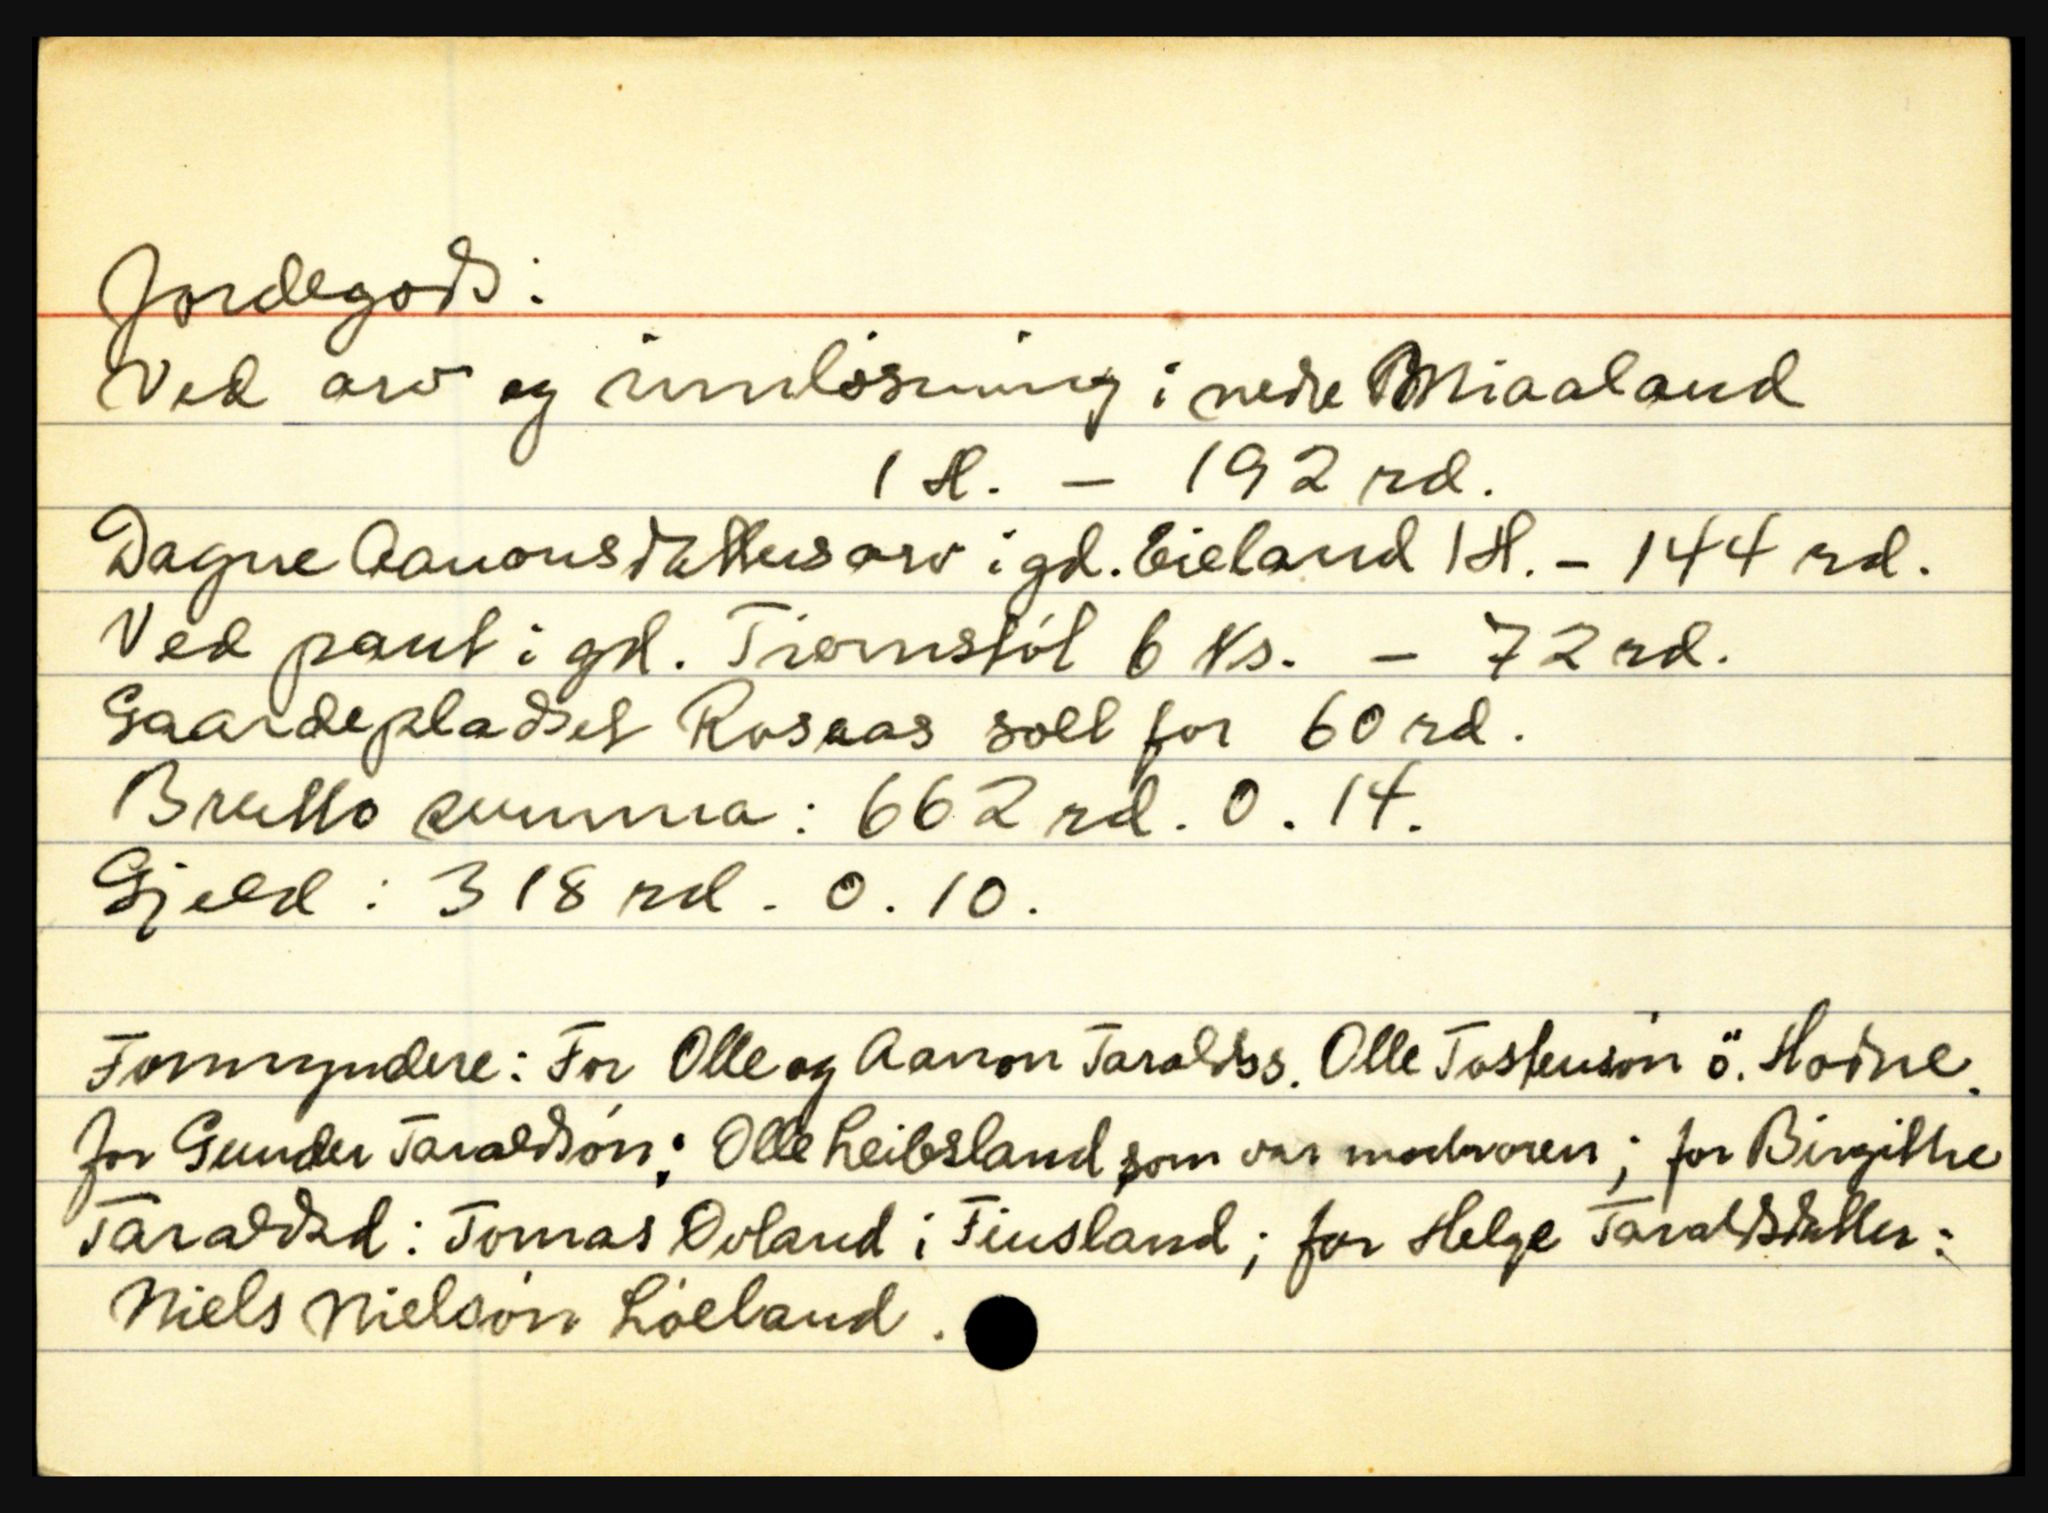 Jordegods:
Ved arv og innløsning i nedre Miaaland
1 H. - 192 rd.
Dagne Aanonsdatters arv i gd. Eieland 1 H. - 144 rd.
Ved pant i gd. Tiomstøl 6 Ks. - 72 rd.
Gaardepladset Rosaas solt for 60 rd.
Brutto summa: 662 rd. 0. 14.
Gjeld: 318 rd. 0. 10.
Formyndere: For Olle og Aanon Taraldss. Olle Tostensøn ö. Hodne.
for Gunder Taraldsøn: Olle Leibsland som var morbroren; for Birgithe
Taraldsd: Tomas Ovland i Finsland; for Helge Taraldsdatter:
Niels Nielsøn Løeland.